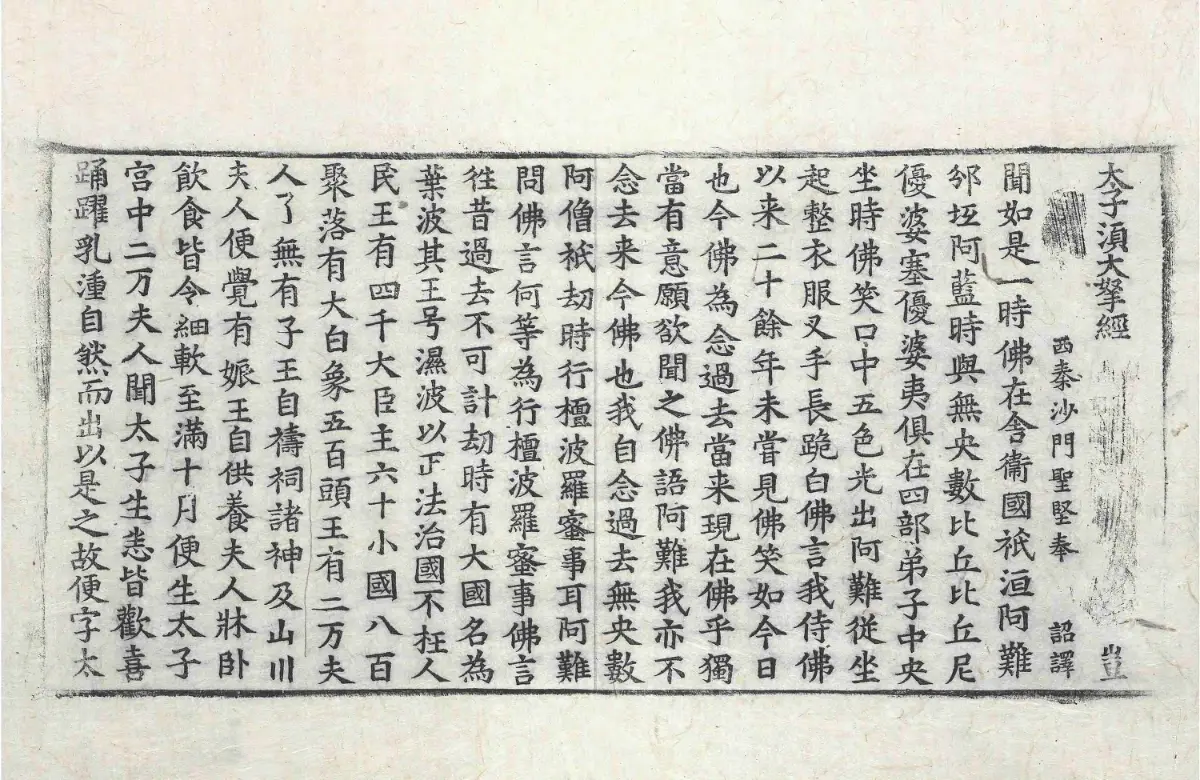 太子湏大拏經 豈
西秦沙門聖堅奉 詔譯
聞如是一時佛在舎衞國祇洹阿難
邠坻阿藍時與無央數比丘比丘尼
優婆塞優婆夷俱在四部弟子中央
坐時佛笑口中五色光出阿難從坐
起整衣服叉手長跪白佛言我侍佛
以来二十餘年未嘗見佛笑如今日
也今佛為念過去當来現在佛乎獨
當有意願欲聞之佛語阿難我亦不
念去来今佛也我自念過去無央數
阿僧祇劫時行檀波羅蜜事耳阿難
問佛言何等為行檀波羅蜜事佛言
徃昔過去不可計劫時有大國名為
葉波其王号濕波以正法治國不枉人
民王有四千大臣主六十小國八百
聚落有大白象五百頭王有二万夫
人了無有子王自禱祠諸神及山川
夫人便覺有娠王自供養夫人牀卧
飲食皆令細軟至滿十月便生太子
宮中二万夫人聞太子生悉皆歡喜
踊躍乳湩自然而出以是之故便字太